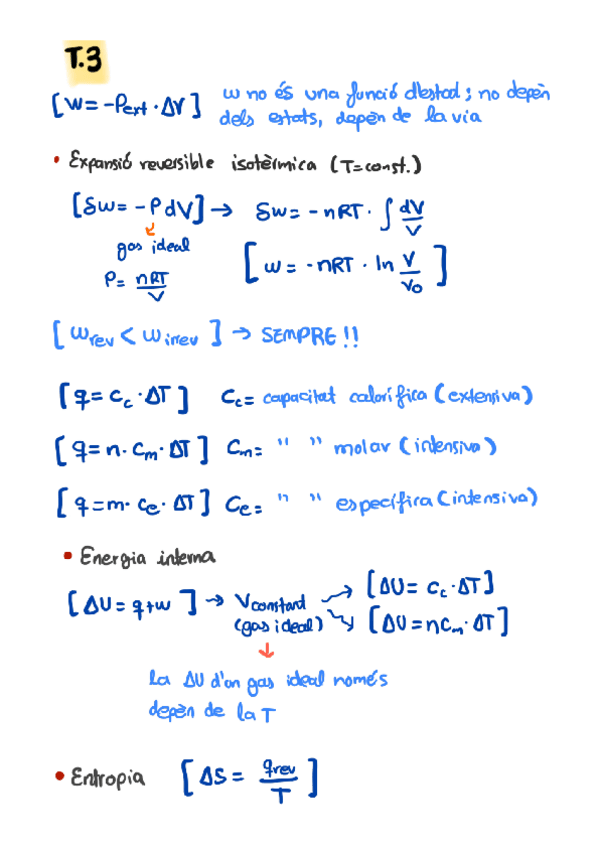 T.3
[w = -Pext · ΔV] w no és una funció d'estat; no depèn
dels estats, depèn de la via
• Expansió reversible isotèrmica (T=const.)
[δw = -P dV] → δw = -nRT · ∫ dV/V
gas ideal
P = nRT/V
[w = -nRT · ln V/V₀]
[Wrev < Wirrev] → SEMPRE!!
[q = Cc · ΔT] Cc = capacitat calorífica (extensiva)
[q = n · Cm · ΔT] Cm = " " molar (intensiva)
[q = m · Ce · ΔT] Ce = " " específica (intensiva)
• Energia interna
[ΔU = q+w] → Vconstant → [ΔU = Cc · ΔT]
(gas ideal) → [ΔU = nCm · ΔT]
↓
la ΔU d'un gas ideal només
depèn de la T
• Entropia [ΔS = qrev/T]